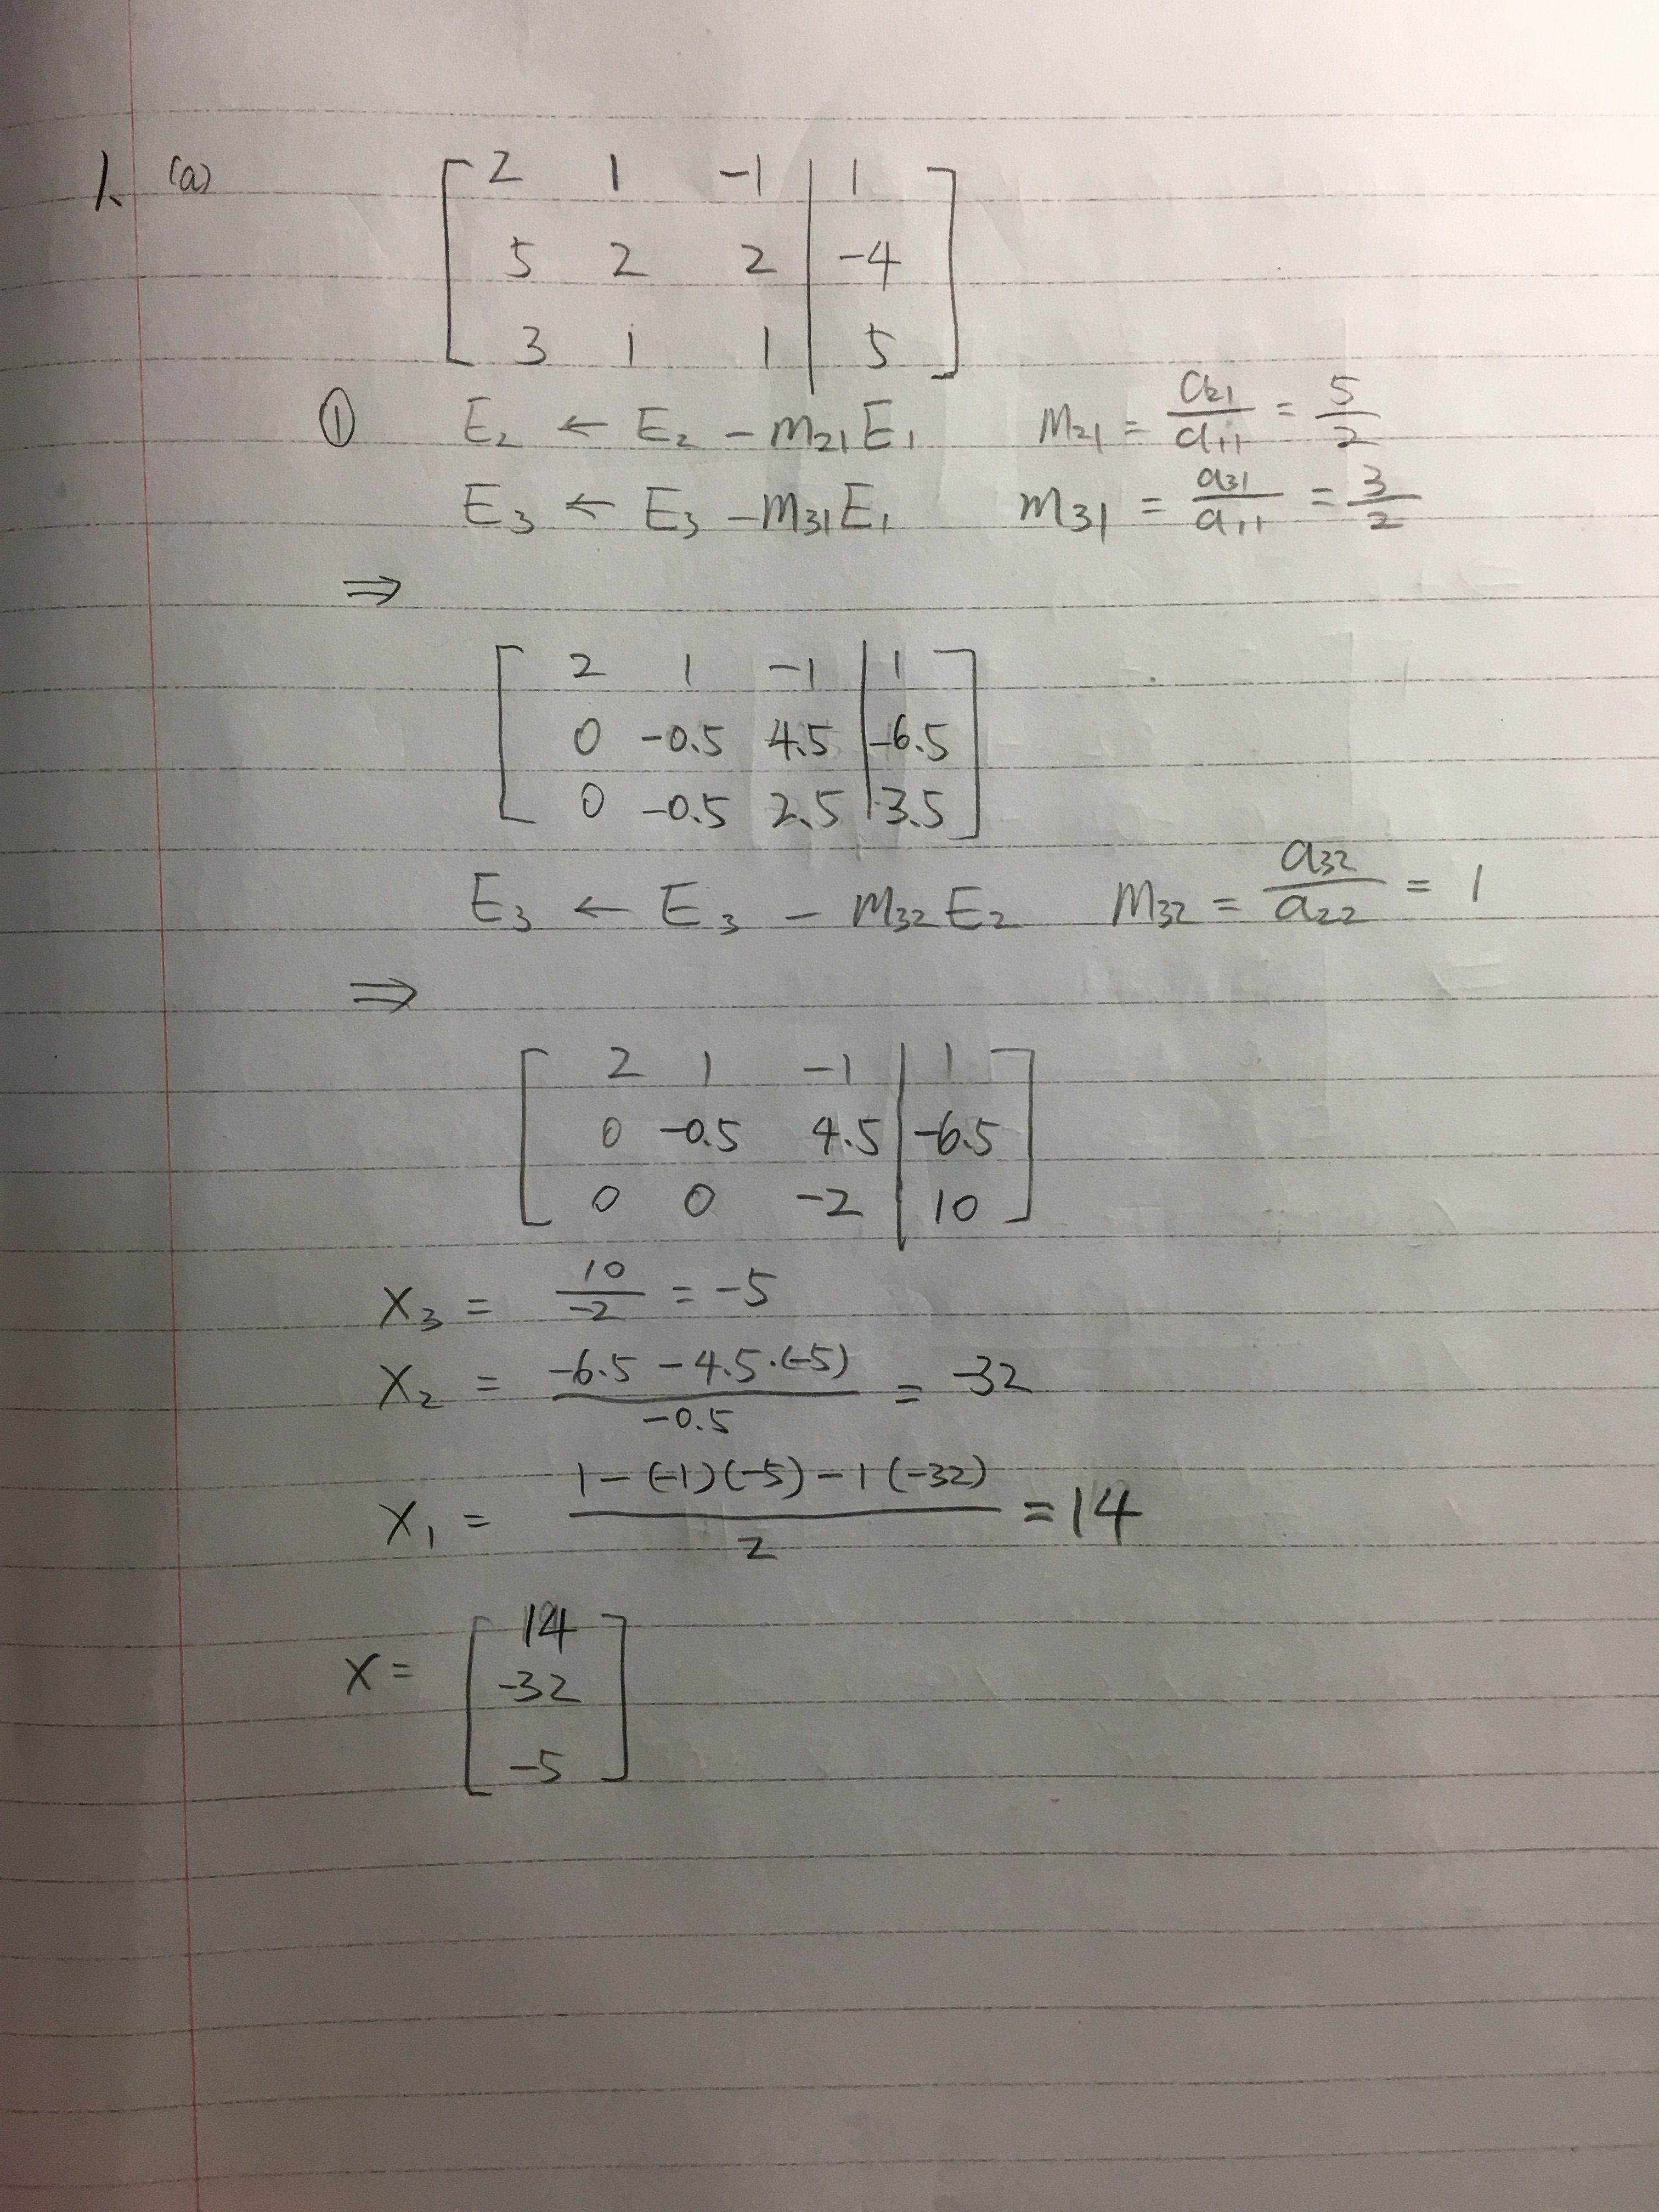 1. (a)
[ 2 1 -1 | 1 ]
[ 5 2 2 | -4 ]
[ 3 1 1 | 5 ]
① E₂ ← E₂ - m₂₁E₁ m₂₁ = a₂₁/a₁₁ = 5/2
E₃ ← E₃ - m₃₁E₁ m₃₁ = a₃₁/a₁₁ = 3/2
⇒
[ 2 1 -1 | 1 ]
[ 0 -0.5 4.5 | -6.5 ]
[ 0 -0.5 2.5 | 3.5 ]
E₃ ← E₃ - m₃₂E₂ m₃₂ = a₃₂/a₂₂ = 1
⇒
[ 2 1 -1 | 1 ]
[ 0 -0.5 4.5 | -6.5 ]
[ 0 0 -2 | 10 ]
x₃ = 10/-2 = -5
x₂ = (-6.5 - 4.5·(-5))/-0.5 = -32
x₁ = (1 - (-1)(-5) - 1(-32))/2 = 14
x = [ 14
-32
-5 ]